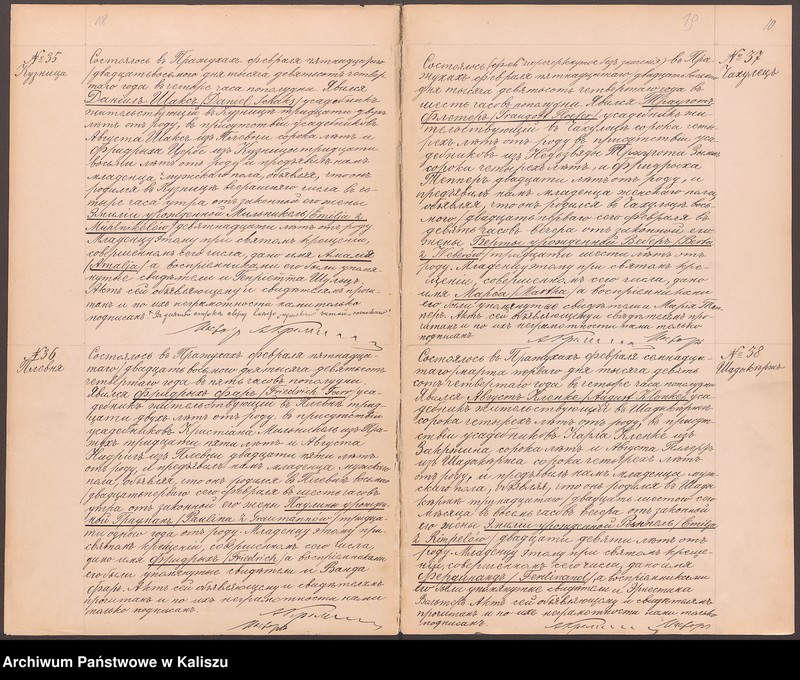 18
№ 35
Кузница
Состоялось въ Пражухахъ февраля пятнадцатаго
/двадцатьвосьмого дня тысяча девятьсотъ четвер
таго года въ четыре часа пополудни. Явился
Данiилъ Шаксъ /Daniel Schaks/ усадебникъ
жительствующiй въ Кузницѣ тридцати двухъ
лѣтъ отъ роду, въ присутствiи усадебниковъ
Августа Шаксъ изъ сорока лѣтъ и
Фридриха изъ Кузницы тридцати
восьми лѣтъ отъ роду и предъявилъ намъ
младенца женскаго пола, объявляя, что онъ
родился въ Кузницѣ вчерашняго числа въ че
тыре часа утра отъ законной его жены
Эмилiи урожденной Мильникель /Emilia z
Mühlnikelów/ девятнадцати лѣтъ отъ роду.
Младенцу этому при святомъ крещенiи,
совершенномъ сего числа, дано имя Амалiя
/Amalja/ а воспрiемниками его были упомя
нутые свидѣтели и Шульцъ.
Актъ сей объявляющему и свидѣтелямъ прочи
танъ и по ихъ неграмотности нами только
подписанъ.
№ 36
Плевня
Состоялось въ Пражухахъ февраля пятнадца
таго /двадцать восьмого дня тысяча девятьсотъ
четвертаго года въ пять часовъ пополудни.
Явился Фридрихъ Фаръ /Fridrich Farr/ уса
дебникъ жительствующiй въ Плевнѣ трид
цати двухъ лѣтъ отъ роду, въ присутствiи
усадебниковъ Христiана изъ Пра
жухъ тридцати пяти лѣтъ и Августа
изъ Плевни двадцати пяти лѣтъ
отъ роду, и предъявилъ намъ младенца мужскаго
пола, объявляя, что онъ родился въ Плевнѣ восьмого
/двадцатьперваго сего февраля въ шесть часовъ
утра отъ законной его жены Паулины урожден
ной Трауманъ /Paulina z Traumannów/ тридца
ти одного года отъ роду. Младенцу этому при
святомъ крещенiи, совершенномъ сего числа,
дано имя Фридрихъ /Fridrich/ а воспрiемниками
его были упомянутые свидѣтели и Ванда
Фаръ. Актъ сей объявляющему и свидѣтелямъ
прочитанъ и по ихъ неграмотности нами
только подписанъ.
19
10
№ 37
Гахулецъ
Состоялось въ Пра
жухахъ февраля пятнадцатаго /двадцатьвосьмого
дня тысяча девятьсотъ четвертаго года въ
шесть часовъ пополудни. Явился Трауготъ
усадебникъ жи
тельствующiй въ Гахульцѣ сорока четы
рехъ лѣтъ отъ роду въ присутствiи уса
дебниковъ изъ Траугота
сорока четырехъ лѣтъ, и Фридриха
Тепперъ двадцати лѣтъ отъ роду, и
предъявилъ намъ младенца женскаго пола,
объявляя, что онъ родился въ Гахульцѣ вось
мого /двадцать перваго сего февраля въ
девять часовъ вечера отъ законной его
жены Берты урожденной Веберъ /Berta
z Weberów/ тридцати шести лѣтъ отъ
роду. Младенцу этому при святомъ кре
щенiи, совершенномъ сего числа, дано
имя Марѳа /Martha/ а воспрiемниками
его были упомянутые свидѣтели и Марiя Теп
перъ. Актъ сей объявляющему и свидѣтелямъ про
читанъ и по ихъ неграмотности нами только
подписанъ.
№ 38
Состоялось въ Пражухахъ февраля семнадца
таго /марта перваго дня тысяча девять
сотъ четвертаго года въ четыре часа пополудни.
Явился Августъ Кленке /August Klenke/ уса
дебникъ жительствующiй въ
сорока четырехъ лѣтъ отъ роду, въ присут
ствiи усадебниковъ Карла Кленке изъ
Закржина сорока лѣтъ и Августа
изъ сорока четырехъ лѣтъ
отъ роду, и предъявилъ намъ младенца муж
скаго пола, объявляя, что онъ родился въ
тринадцатаго /двадцать шестого сего
мѣсяца въ восемь часовъ вечера отъ законной
его жены Эмилiи урожденной Римпель /Emilja
z Rimpelów/ двадцати девяти лѣтъ отъ
роду. Младенцу этому при святомъ креще
нiи, совершенномъ сего числа, дано имя
Фердинандъ /Ferdinand/ а воспрiемниками
его были упомянутые свидѣтели и Эрнестина
Вальтеръ. Актъ сей объявляющему и свидѣтелямъ
прочитанъ и по ихъ неграмотности нами только
подписанъ.
Archiwum Państwowe w Kaliszu